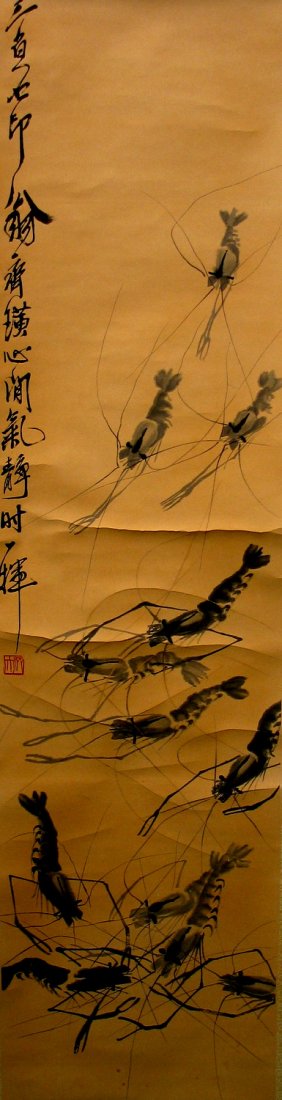 三百石印翁齊璜心閒氣靜時一揮